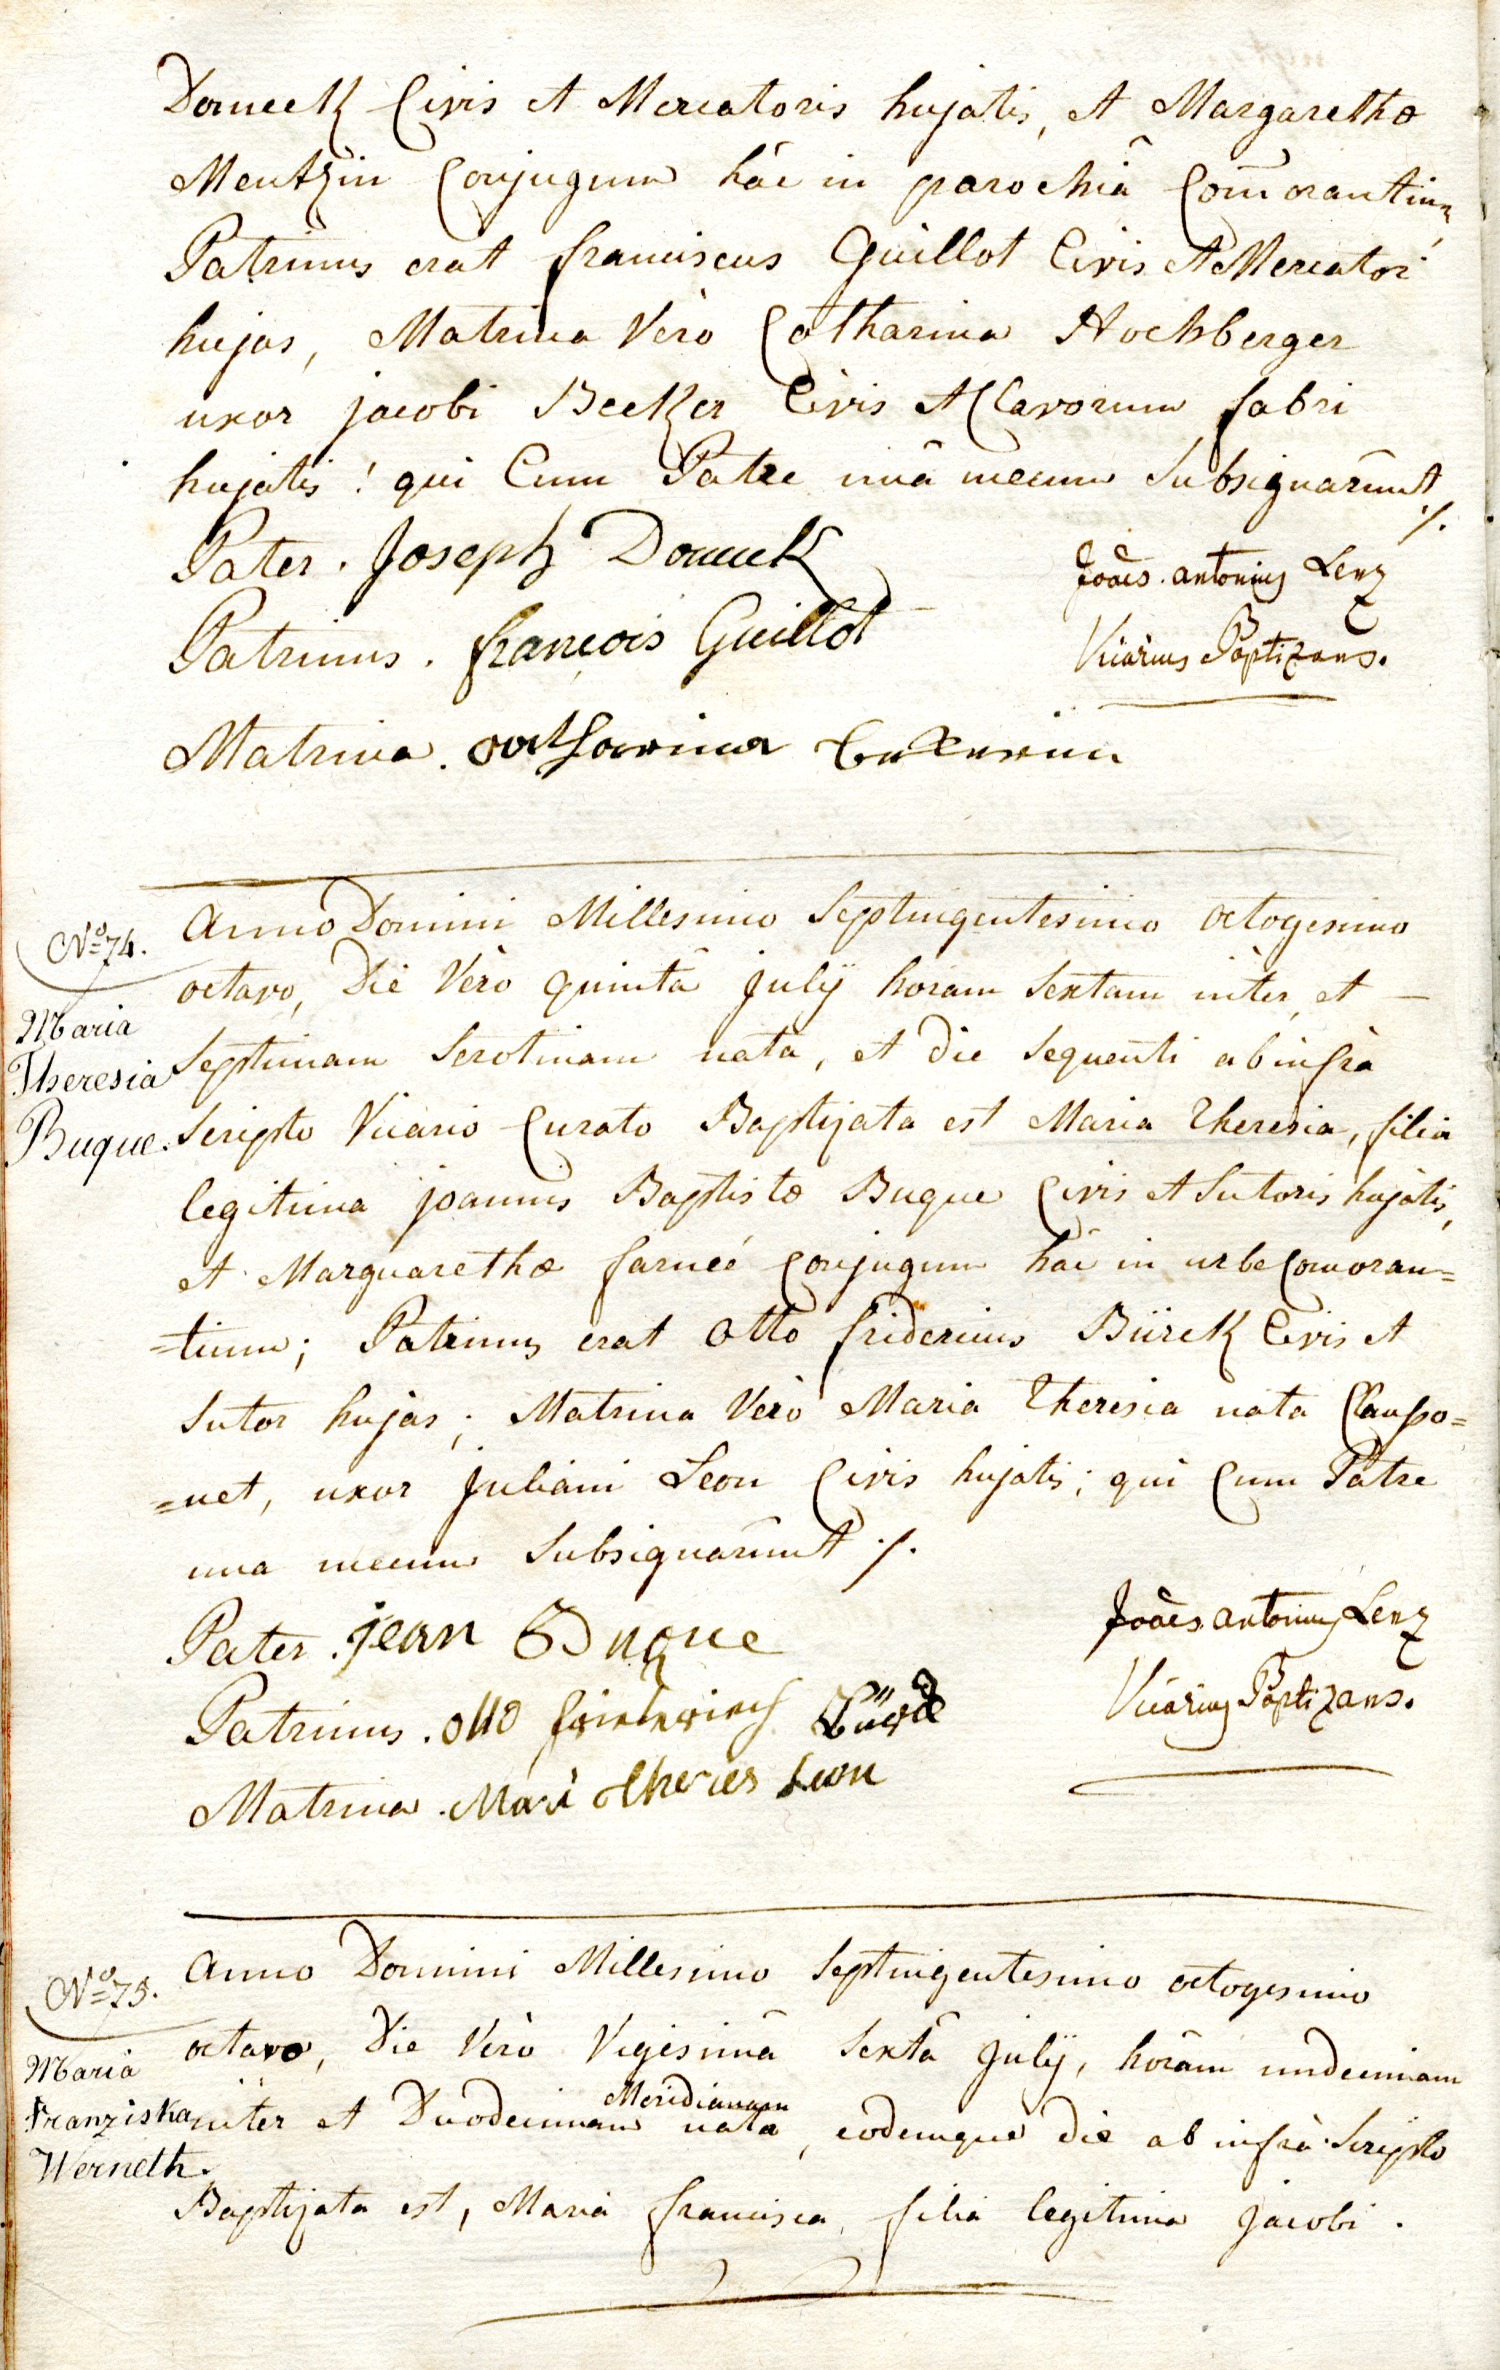 Domeck Civis et Mercatoris hujatis, et Margarethæ
Mentzin Conjugum hâc in parochiâ Com̄orantium,
Patrinus erat franciscus Guillot Civis et Mercator
hujas, Matrina Verò Catharina Hochberger
uxor jacobi Becker Civis et Clavorum fabri
hujatis! qui Cum Patre unâ mecum Subsignârunt ./.
Pater. Joseph Domeck
Joães. antonius Lenz
Patrinus. françois Guillot
Vicarius Baptizans.
Matrina. Catharina Beckerin
N.º 74.
Maria
Theresia
Buque.
Anno Domini Millesimo Septingentesimo octogesimo
octavo, Die Verò quintâ julÿ horam Sextam inter, et —
Septimam Serotinam nata, et die Sequenti ab infrà
Scripto Vicario Curato Baptizata est Maria Theresia, filia
legitima joannis Baptistæ Buque Civis et Sutoris hujatis,
et Marguarethæ farneé Conjugum hâc in urbe Comoran=
=tium; Patrinus erat Otto fridericus Bürck Civis et
Sutor hujas; Matrina Verò Maria Theresia nata Claupo=
=net, uxor Juliani Leon Civis hujatis; qui Cum Patre
una mecum Subsignârunt ./.
Pater. jean Buque
Joães. antonius Lenz
Patrinus. Otto friederich Bürck
Vicarius Baptizans.
Matrina. Mari Theres Leon
N.º 75.
Maria
Franziska
Werneth.
Anno Domini Millesimo Septingentesimo octogesimo
octavo, Die Verò Vigesimâ Sextâ julÿ, horam undecimam
inter et Duodecimam Meridianam nata, eodemque die ab infrà Scripto
Baptizata est, Maria francisca, filia legitima Jacobi.